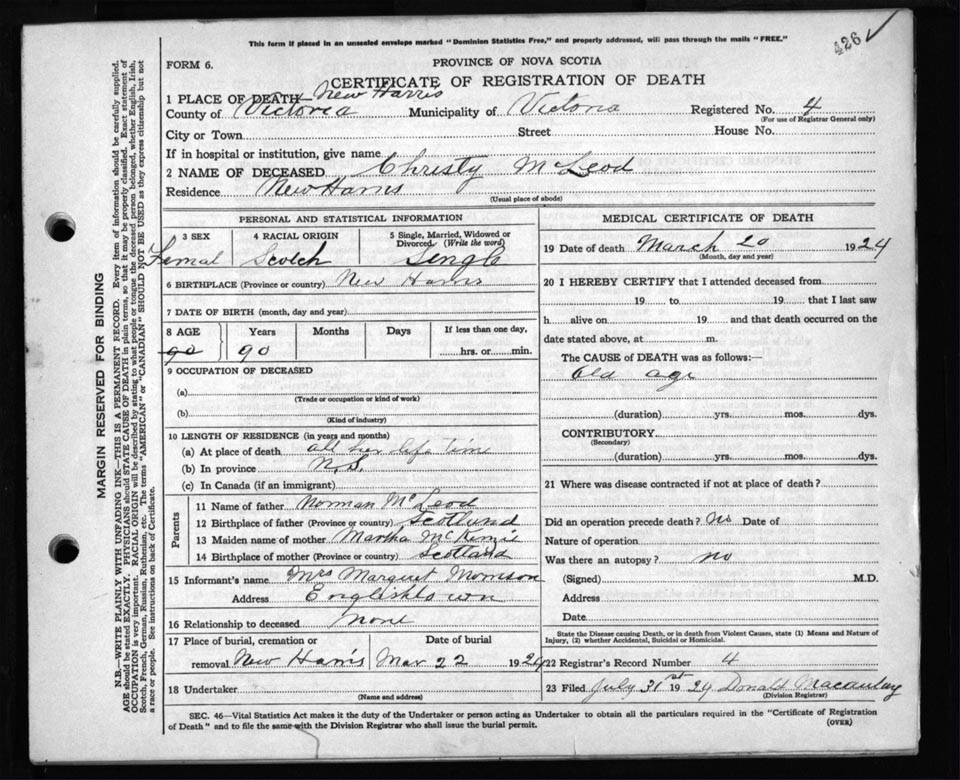 This form if placed in an unsealed envelope marked "Dominion Statistics Free," and properly addressed, will pass through the mails "FREE."
426 ✓
FORM 6.
PROVINCE OF NOVA SCOTIA
CERTIFICATE OF REGISTRATION OF DEATH
1 PLACE OF DEATH New Harris
County of Victoria Municipality of Victoria Registered No. 4
(For use of Registrar General only)
City or Town Street House No.
If in hospital or institution, give name
2 NAME OF DECEASED Christy McLeod
Residence New Harris
(Usual place of abode)
PERSONAL AND STATISTICAL INFORMATION
3 SEX 4 RACIAL ORIGIN 5 Single, Married, Widowed or Divorced. (Write the word)
Femal Scotch Singl
6 BIRTHPLACE (Province or country) New Harris
7 DATE OF BIRTH (month, day and year)
8 AGE Years Months Days If less than one day,
90 90 hrs. or min.
9 OCCUPATION OF DECEASED
(a)
(Trade or occupation or kind of work)
(b)
(Kind of industry)
10 LENGTH OF RESIDENCE (in years and months)
(a) At place of death all her life time
(b) In province N.S.
(c) In Canada (if an immigrant)
Parents
11 Name of father Norman McLeod
12 Birthplace of father (Province or country) Scotlund
13 Maiden name of mother Martha McKenzie
14 Birthplace of mother (Province or country) Scotland
15 Informant's name Mrs Margret Morrison
Address Englishtown
16 Relationship to deceased none
17 Place of burial, cremation or Date of burial
removal New Harris Mar 22 1924
18 Undertaker
(Name and address)
MEDICAL CERTIFICATE OF DEATH
19 Date of death March 20 1924
(Month, day and year)
20 I HEREBY CERTIFY that I attended deceased from
19 to 19 that I last saw
h alive on 19 and that death occurred on
date stated above, at m.
The CAUSE of DEATH was as follows:—
Old age
(duration) yrs. mos. dys.
CONTRIBUTORY
(Secondary)
(duration) yrs. mos. dys.
21 Where was disease contracted if not at place of death?
Did an operation precede death? No Date of
Nature of operation
Was there an autopsy? no
(Signed) M.D.
Address
Date
State the Disease causing Death, or in death from Violent Causes, state (1) Means and Nature of
Injury, (2) whether Accidental, Suicidal or Homicidal.
22 Registrar's Record Number 4
23 Filed July 31st 1924 Donald Macaulay
(Division Registrar)
SEC. 46—Vital Statistics Act makes it the duty of the Undertaker or person acting as Undertaker to obtain all the particulars required in the "Certificate of Registration
of Death" and to file the same with the Division Registrar who shall issue the burial permit.
(OVER)
MARGIN RESERVED FOR BINDING
N.B.—WRITE PLAINLY WITH UNFADING INK—THIS IS A PERMANENT RECORD. Every item of information should be carefully supplied.
AGE should be stated EXACTLY. PHYSICIANS should STATE CAUSE OF DEATH in plain terms, so that it may be properly classified. Exact statement of
OCCUPATION is very important. RACIAL ORIGIN will be described by stating to what people or tongue the deceased person belonged, whether English, Irish,
Scotch, French, German, Russian, Ruthenian, etc. The terms "AMERICAN" or "CANADIAN" SHOULD NOT BE USED as they express citizenship but not
a race or people. See instructions on back of Certificate.